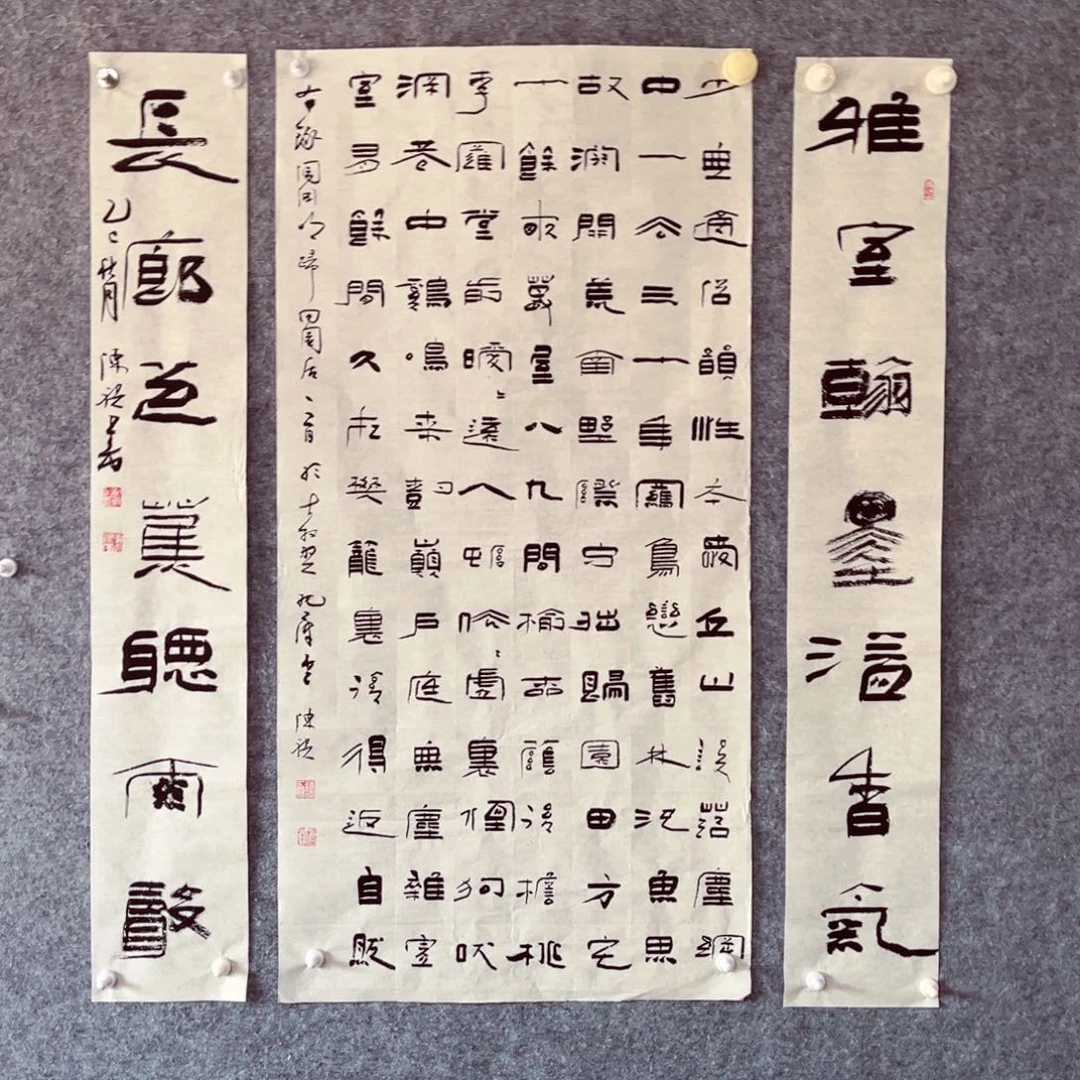 雅室翰墨清香氣
少無適俗韻性本愛丘山誤落塵網
中一去三十年羈鳥戀舊林池魚思
故淵開荒南野際守拙歸園田方宅
十餘畝草屋八九間榆柳蔭後檐桃
李羅堂前曖〻遠人邨依〻虛裏煙狗吠
深巷中鷄鳴桑樹巔戶庭無塵雜虛
室有餘閒久在樊籠裏復得返自然
右錄陶淵明歸田園居一首於 堂 陳
長廊芭蕉聽雨聲
乙巳秋月 陳 書